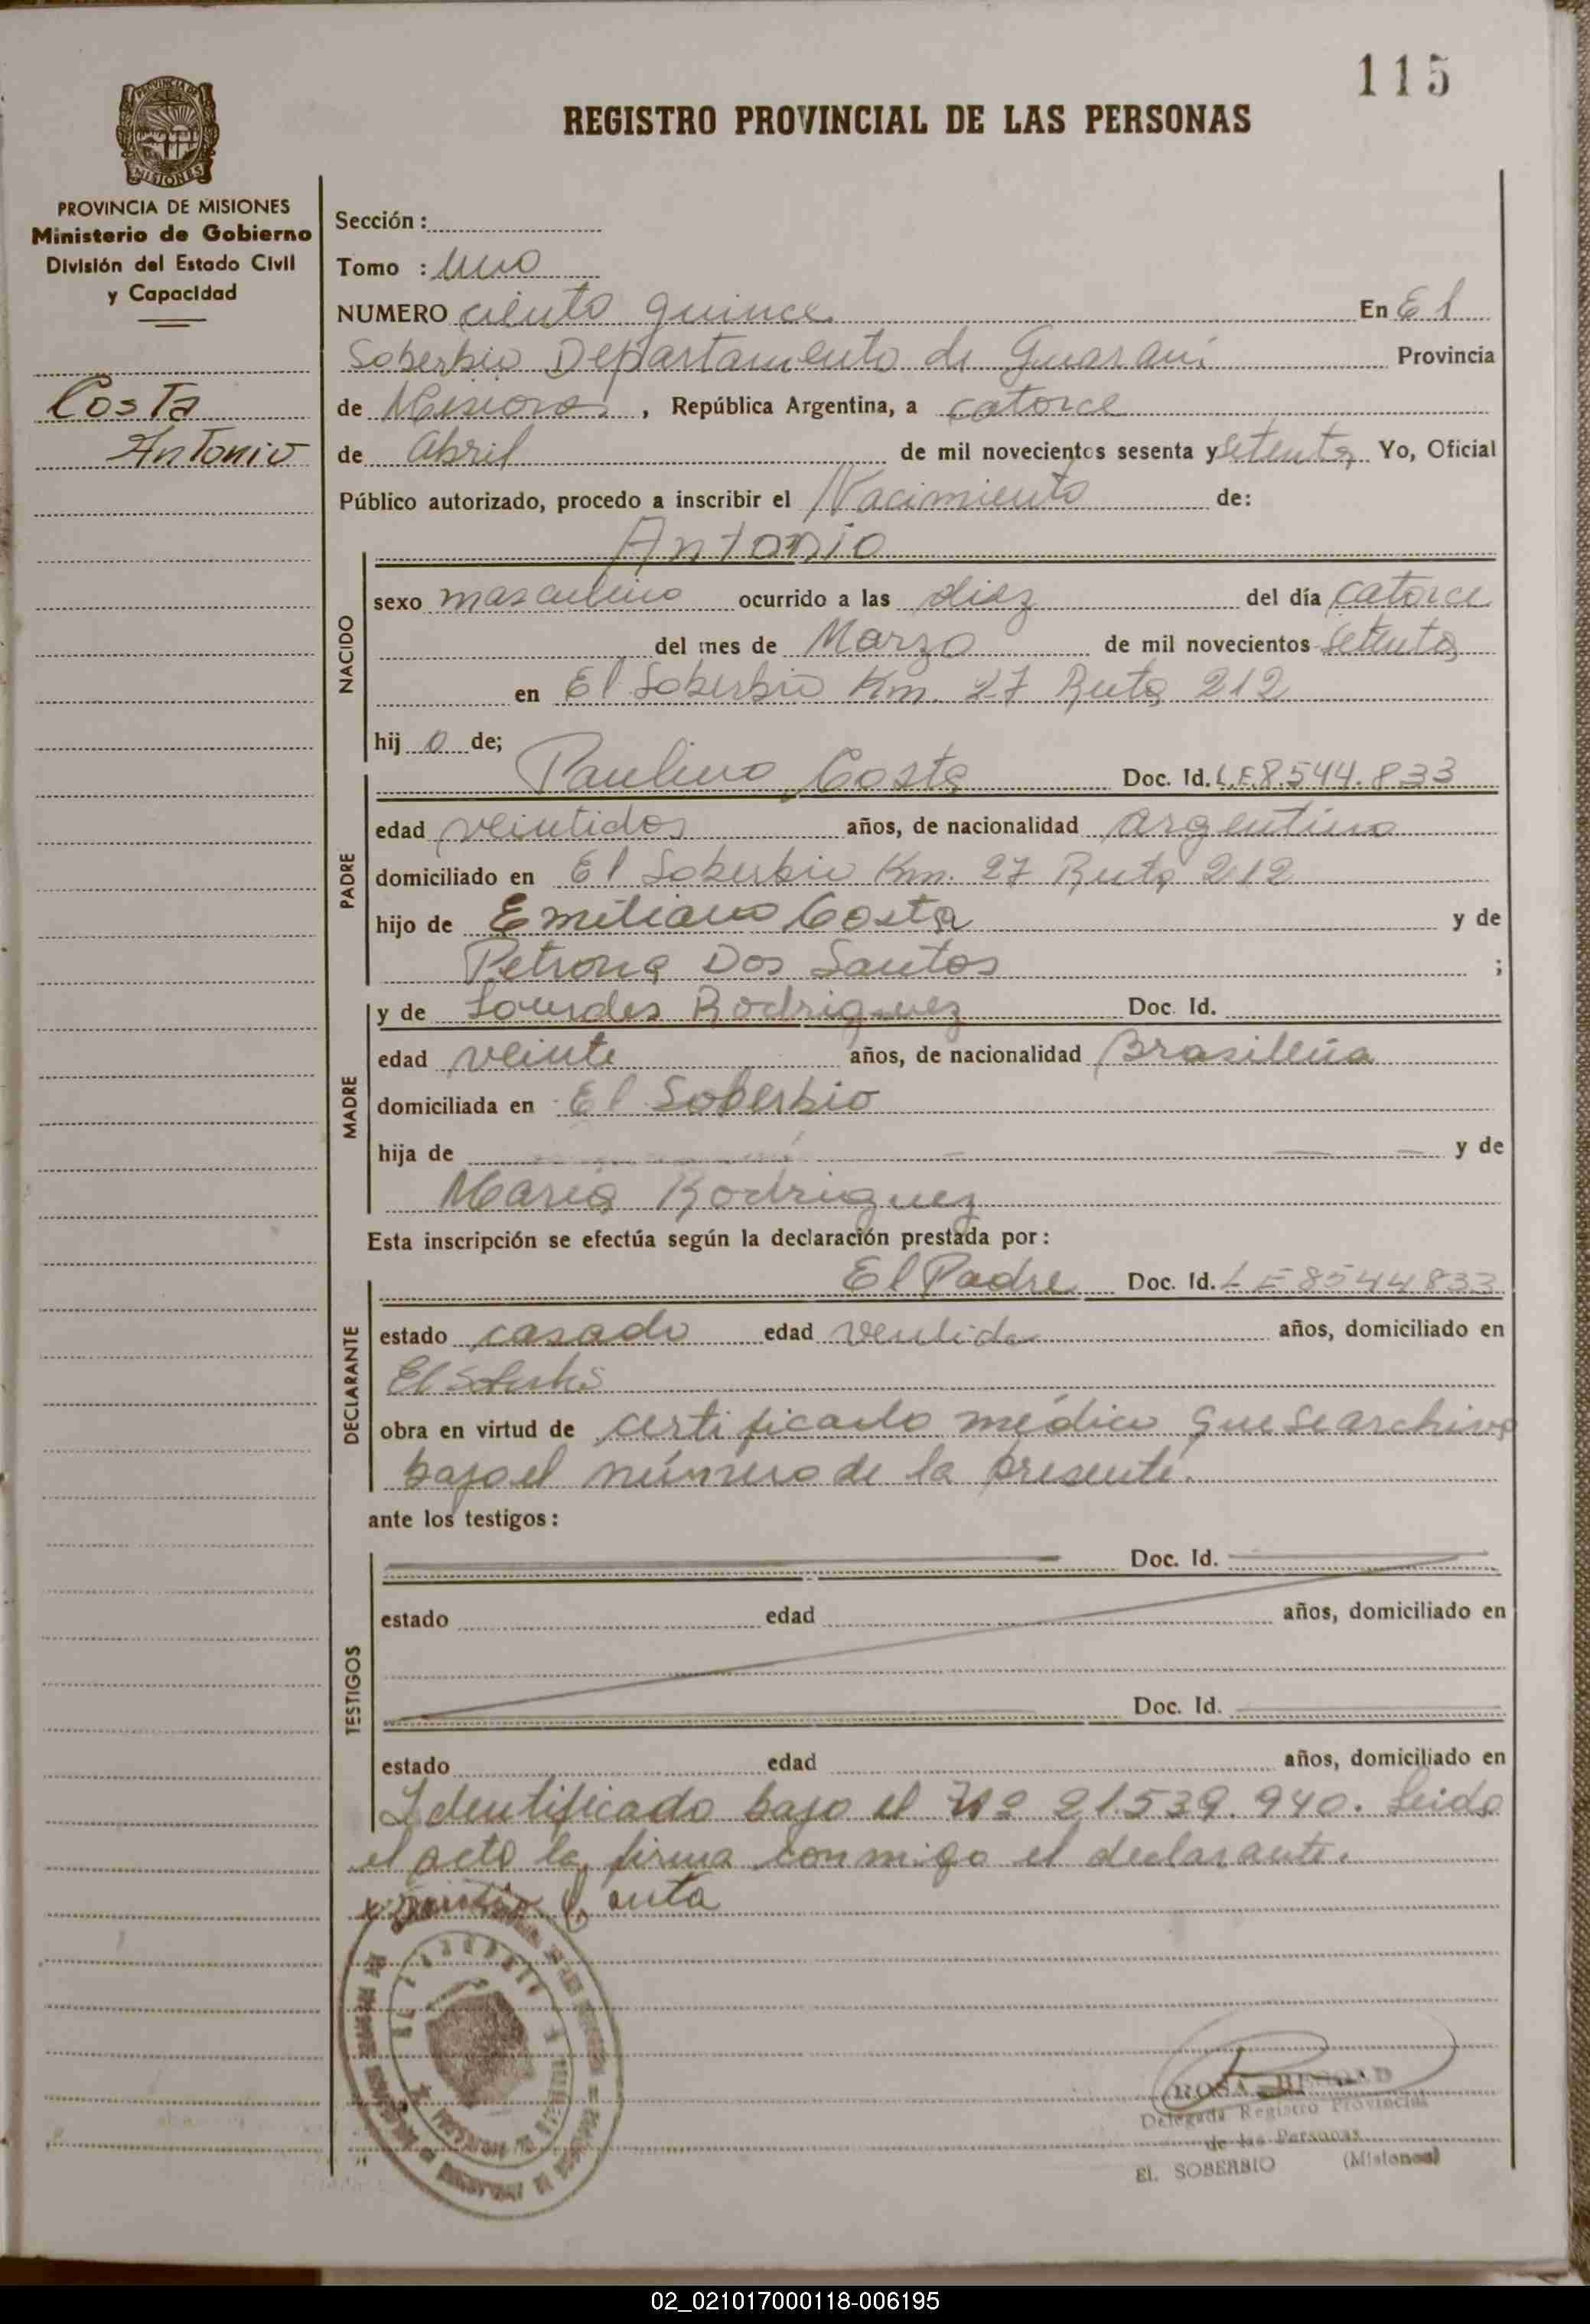 115
REGISTRO PROVINCIAL DE LAS PERSONAS
PROVINCIA DE MISIONES
Ministerio de Gobierno
División del Estado Civil
y Capacidad
Costa
Antonio
Sección:
Tomo : Uno
NUMERO ciento quince En El
Soberbio Departamento de Guaraní Provincia
de Misiones, República Argentina, a catorce
de Abril de mil novecientos sesenta y setenta Yo, Oficial
Público autorizado, procedo a inscribir el Nacimiento de:
Antonio
NACIDO
sexo masculino ocurrido a las diez del día catorce
del mes de Marzo de mil novecientos setenta
en El Soberbio Km. 27 Ruta 212
hij o de;
Paulino Costa Doc. Id. L.E.8.544.833
PADRE
edad veintidos años, de nacionalidad argentino
domiciliado en El Soberbio Km. 27 Ruta 212
hijo de Emiliano Costa y de
Petrona Dos Santos ;
y de Lourdes Rodriguez Doc. Id.
MADRE
edad veinte años, de nacionalidad Brasileña
domiciliada en El Soberbio
hija de y de
Maria Rodriguez
Esta inscripción se efectúa según la declaración prestada por:
El Padre Doc. Id. L E 8544833
DECLARANTE
estado casado edad ventidos años, domiciliado en
El Soberbio
obra en virtud de certificado médico que se archiva
bajo el número de la presente.
ante los testigos:
TESTIGOS
Doc. Id.
estado edad años, domiciliado en
Doc. Id.
estado edad años, domiciliado en
Identificado bajo el Nº 21.539.940. Leida
el acta la firma conmigo el declarante.
ROSA
Delegada Registro Provincial
de las Personas
EL SOBERBIO (Misiones)
02_021017000118-006195